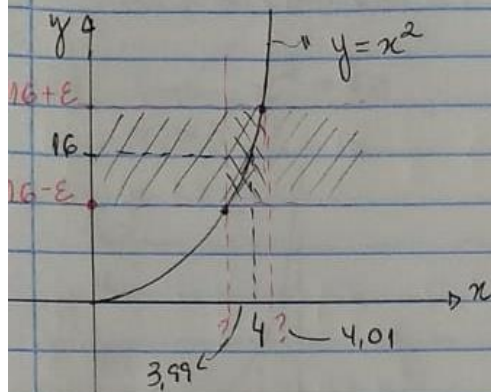 y
y = x²
16+ε
16
16-ε
x
? 4 ? 4,01
3,99